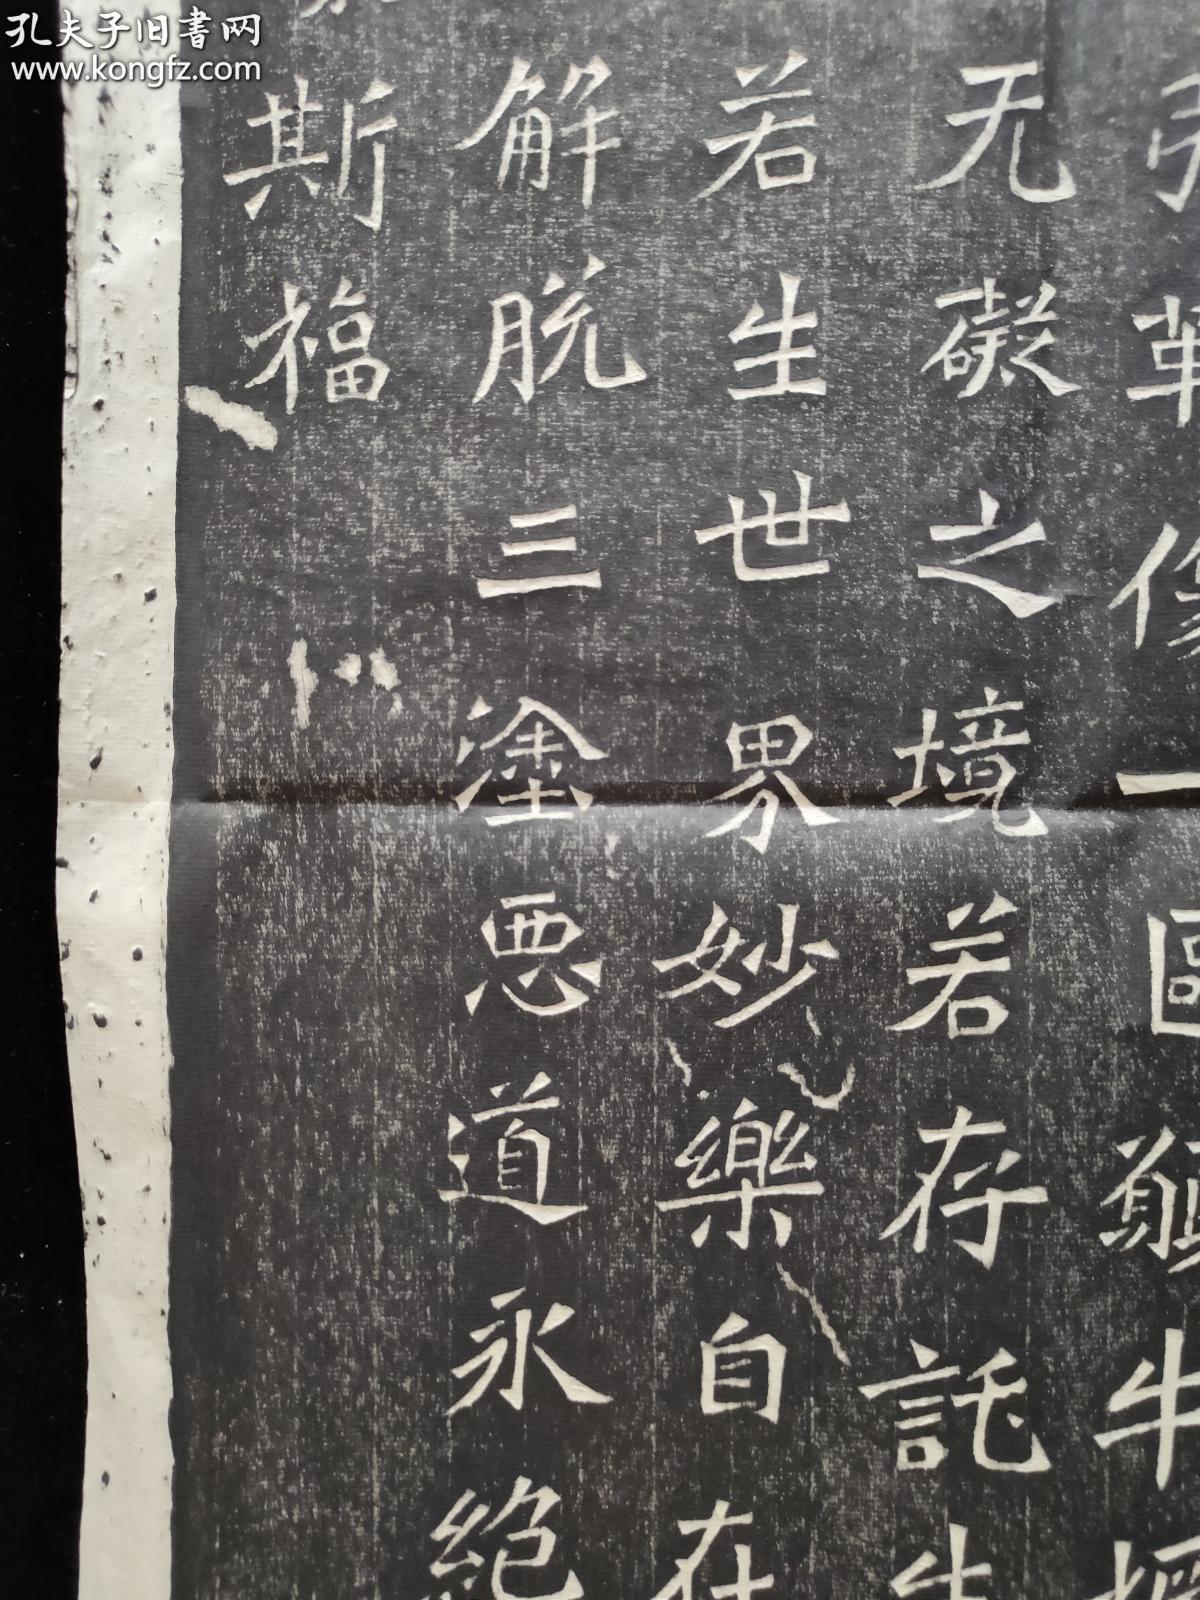 孔夫子旧書网
www.kongfz.com
弥勒像一區願牛橛
无礙之境若存託生
若生世界妙樂自在
解脱三塗惡道永絶
斯福